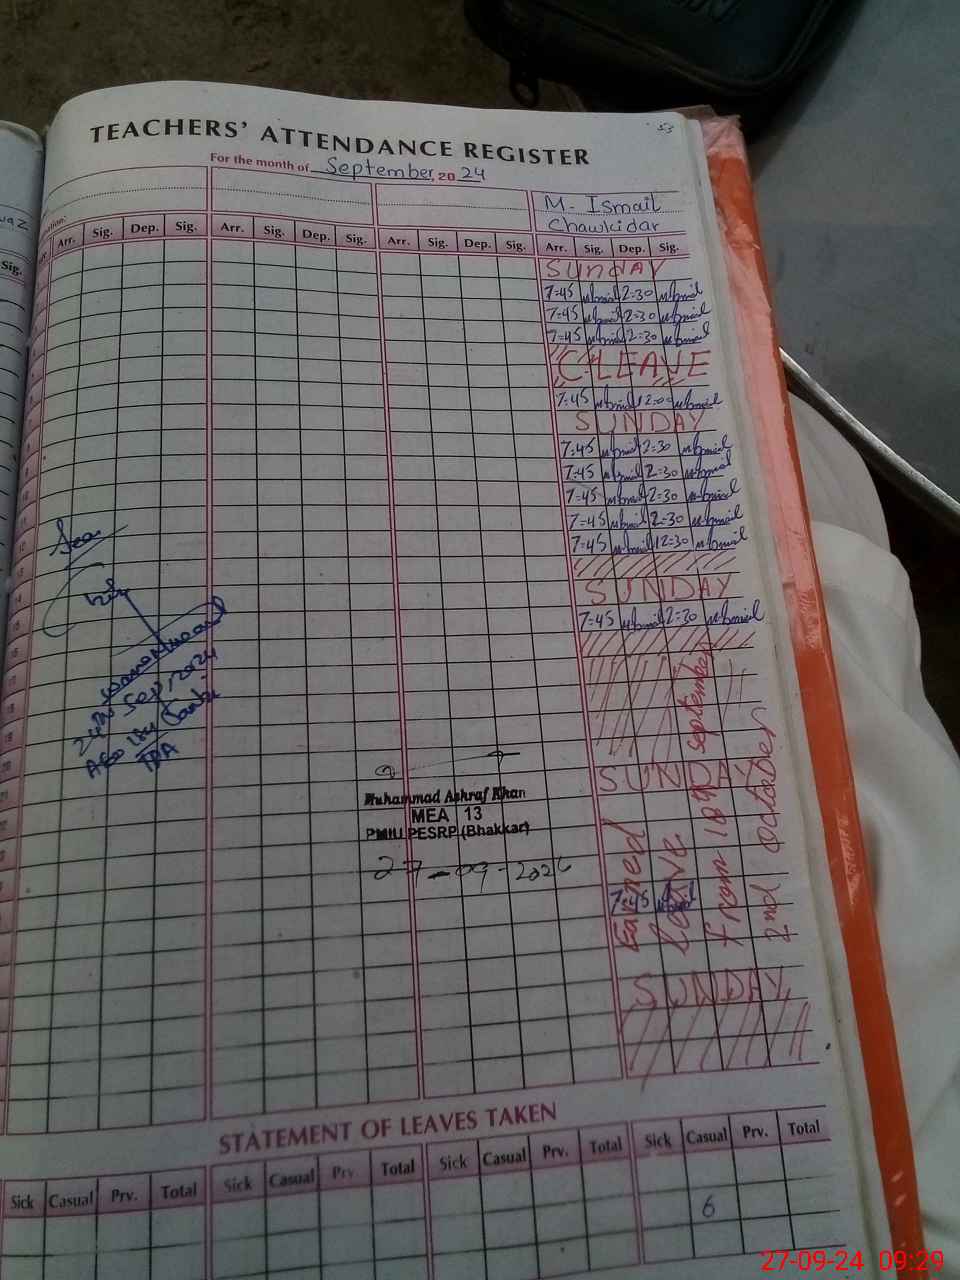 53
TEACHERS' ATTENDANCE REGISTER
For the month of September, 20 24
M. Ismail
Chawkidar
Sig.
Arr. Sig. Dep. Sig. Arr. Sig. Dep. Sig. Arr. Sig. Dep. Sig. Arr. Sig. Dep. Sig.
SUNDAY
7:45 2:30
7:45 2:30
7:45 2:30
C-LEAVE
7:45 12:00
SUNDAY
7:45 2:30
7:45 2:30
7:45 2:30
7:45 2:30
7:45 12:30
SUNDAY
7:45 2:30
SUNDAY
Earned
leave
from 18th September
2nd October
7:45
SUNDAY
24th Sep, 2024
Muhammad Ashraf Khan
MEA 13
PMIU PESRP (Bhakkar)
27-09-2024
STATEMENT OF LEAVES TAKEN
Sick Casual Prv. Total Sick Casual Prv Total Sick Casual Prv. Total Sick Casual Prv. Total
6
27-09-24 09:29